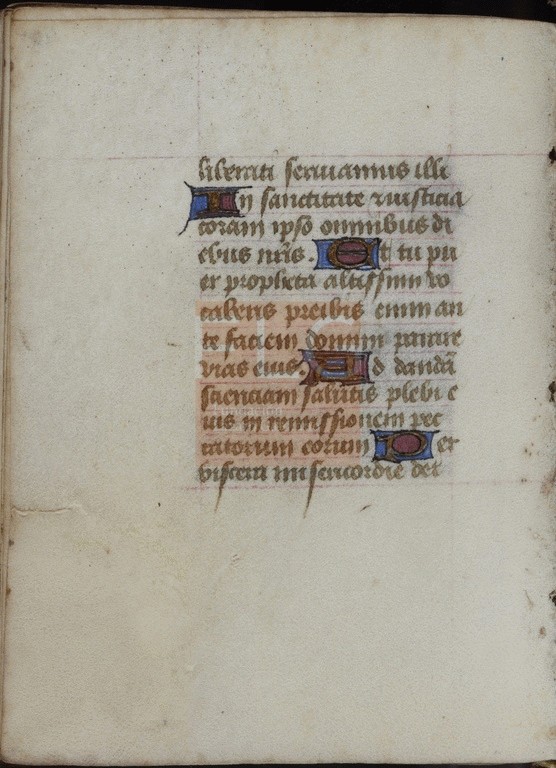 liberati seruiamus illi
In sanctitate & iusticia
coram ipso omnibus di
ebus nr̃is. Et tu pu
er propheta altissimi vo
caberis preibis enim an
te faciem domini parare
vias eius. Ad dandã
scienciam salutis plebi e
ius in remissionem pec
catorum eorum Per
viscera misericordie dei